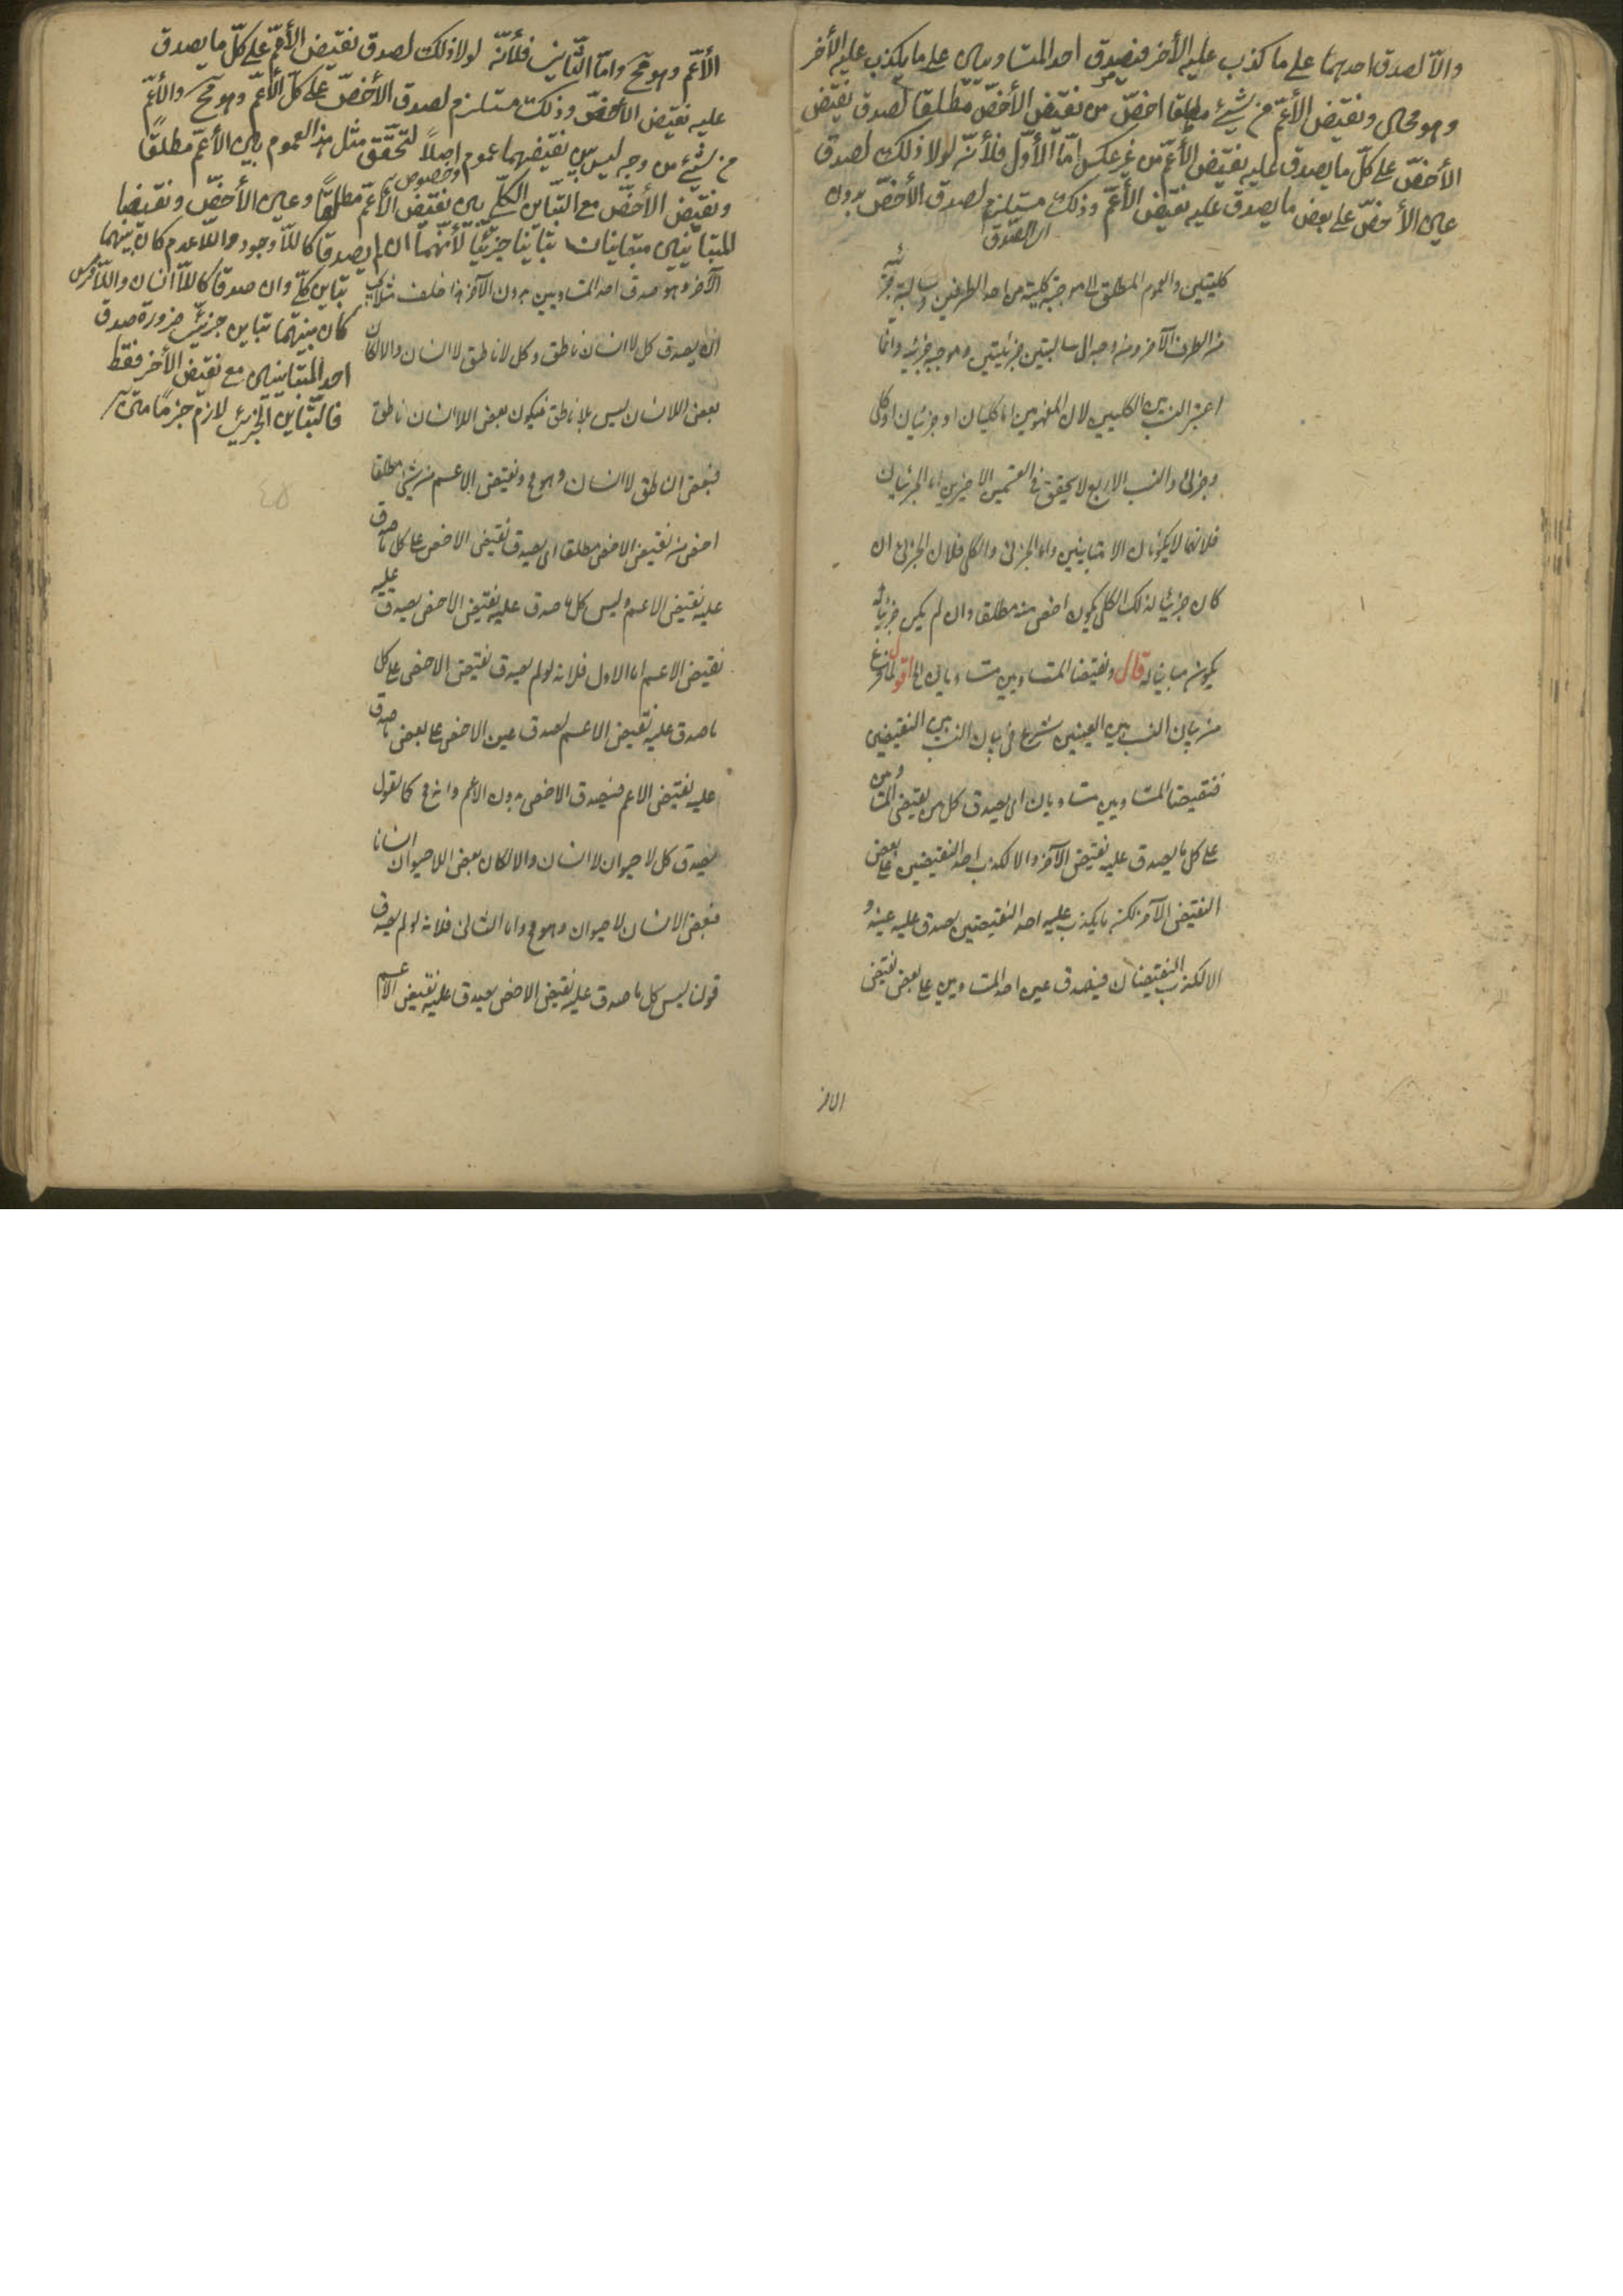 والّا لصدق احدهما على ما كذب عليه الأخر فيصدق احد المتساويين على ما يكذب عليه الأخر
وهو محال ونقيض الأعمّ من شيئ مطلقا اخصّ من نقيض الأخصّ مطلقا لصدق نقيض
الأخصّ على كلّ ما يصدق عليه نقيض الأعمّ من غير عكس امّا الأوّل فلأنّه لولا ذلك لصدق
عين الأخصّ على بعض ما يصدق عليه نقيض الأعمّ وذلك مستلزم لصدق الأخصّ بدون
كليتين والعموم المطلق الى موجبة كلية من احد الطرفين وسالبة جزئية
من الطرف الآخر ومن وجه الى سالبتين جزئيتين وموجبة جزئية وانما
اعتبر النسب بين الكليين لان المفهومين اما كليان او جزئيان او كلى
وجزئى والنسب الاربع لا يتحقق فى القسمين الاخيرين اما الجزئيان
فلانهما لا يكونان الا متباينين واما الجزئى والكلى فلان الجزئى ان
كان جزئيا لذلك الكلى يكون اخص منه مطلقا وان لم يكن جزئيا له
يكون مباينا له قال ونقيضا المتساويين متساويان الخ اقول لما فرغ
من بيان النسب بين العينين شرع فى بيان النسب بين النقيضين
فنقيضا المتساويين متساويان اى يصدق كل من نقيضى المتساويين
على كل ما يصدق عليه نقيض الآخر والا لكذب احد النقيضين على بعض
النقيض الآخر لكن ما يكذب عليه احد النقيضين يصدق عليه عينه و
الا لكذب النقيضان فيصدق عين احد المتساويين على بعض نقيض
الآخر
الأعمّ وهو مح وامّا الثّاني فلأنّه لولا ذلك لصدق نقيض الأعمّ على كلّ ما يصدق
عليه نقيض الأخصّ وذلك مستلزم لصدق الأخصّ على كلّ الأعمّ وهو مح والأعمّ
من شيئ من وجه ليس بين نقيضهما عموم وخصوص اصلاً لتحقّق مثل هذا العموم بين الأعمّ مطلقًا
ونقيض الأخصّ مع التّباين الكلّي بين نقيض الأعمّ مطلقًا وعين الأخصّ ونقيضا
المتباينين متباينان تباينا جزئيّا لأنّهما ان لم يصدقا كاللّا وجود واللّا عدم كان بينهما
تباين كلّي وان صدقا كاللّا انسان واللّا فرس
كان بينهما تباين جزئيّ ضرورة صدق
احد المتباينين مع نقيض الأخر فقط
فالتّباين الجزئيّ لازم جزمًا متن
الآخر وهو صدق احد المتساويين بدون الآخر هذا خلف مثلا يجب
ان يصدق كل لا انسان لا ناطق وكل لا ناطق لا انسان والا لكان
بعض اللا انسان ليس بلا ناطق فيكون بعض اللا انسان ناطقا
فبعض الناطق لا انسان وهو مح ونقيض الاعم من شئ مطلقا
اخص من نقيض الاخص مطلقا اى يصدق نقيض الاخص على كل ما صدق
عليه نقيض الاعم وليس كل ما صدق عليه نقيض الاخص يصدق عليه
نقيض الاعم اما الاول فلانه لو لم يصدق نقيض الاخص على كل
ما صدق عليه نقيض الاعم لصدق عين الاخص على بعض ما صدق
عليه نقيض الاعم فيصدق الاخص بدون الاعم وانه مح كما نقول
يصدق كل لا حيوان لا انسان والا لكان بعض اللا حيوان انسانا
فبعض الانسان لا حيوان وهو مح واما الثانى فلانه لو لم يصدق
قولنا ليس كل ما صدق عليه نقيض الاخص يصدق عليه نقيض الاعم